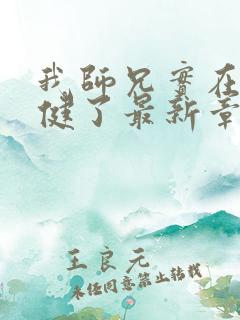 我師兄實在
健了最新章
王良元
未经同意禁止转载